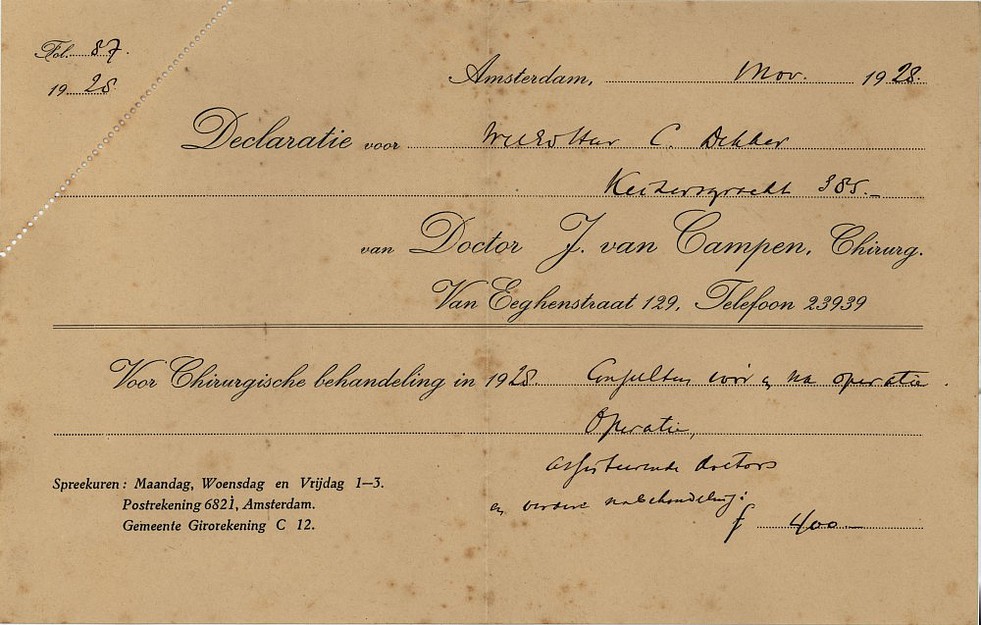 Fol. 87.
1928
Amsterdam, Nov. 1928.
Declaratie voor C. Dekker
Keizersgracht 385.-
van Doctor J. van Campen, Chirurg.
Van Eeghenstraat 129, Telefoon 23939
Voor Chirurgische behandeling in 1928. Consulten voor en na operatie.
Operatie,
assisteerende doctors
en verdere nabehandeling:
f 400.-
Spreekuren: Maandag, Woensdag en Vrijdag 1-3.
Postrekening 6821, Amsterdam.
Gemeente Girorekening C 12.